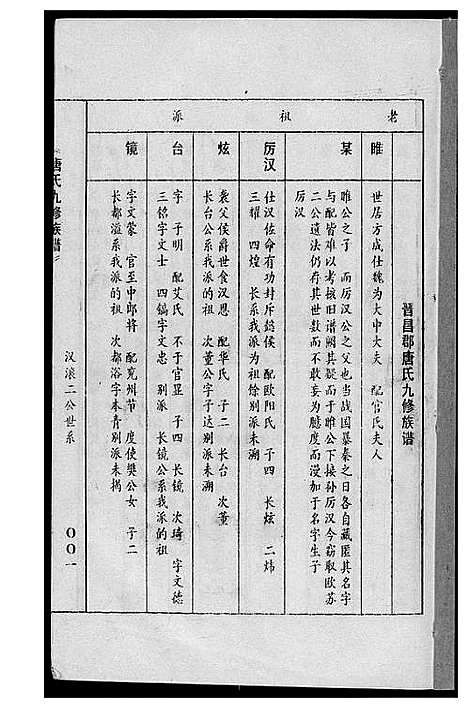 晋昌郡唐氏九修族谱
老祖派
睢
世居方成仕魏为大中大夫 配官氏夫人
某
睢公之子 而厉汉公之父也当战国暴秦之日各自藏匿其名字
与配皆难以考核旧谱阙其疑而于睢公下接孙厉汉今窃取欧苏
二公遗法仍存其世数而不敢妄为臆度而漫加于名字生子
厉汉
厉汉
仕汉佐命有功封斥懿侯 配欧阳氏 子四 长炫 二炜
三耀 四煌 长系我派为祖馀别派未溯
炫
袭父侯爵世食汉恩 配华氏 子二 长台 次董
长台公系我派的祖 次董公字子达别派未溯
台
字 子明 配艾氏 不于官显 子四 长镜 次琦 字文德
三铭字文士 四镐字文忠 别派 长镜公系我派的祖
镜
字文蒙 官至中郎将 配兖州节度使樊公女 子二
长都溢系我派的祖 次都浴字本青别派未揭
唐氏九修族谱
汉滚二公世系
〇〇一